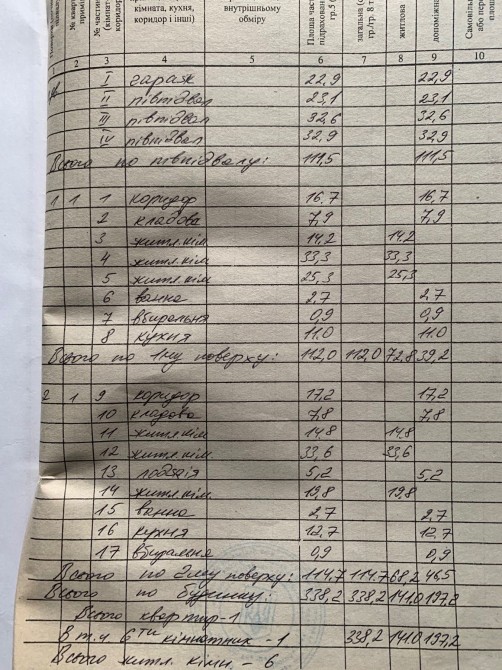 № кварт
приміщ
№ частин
(кімнати
коридор
кімната, кухня,
коридор і інші)
внутрішньому
обміру
Площа част
підрахован
гр.5 (
загальна (с
гр./гр. 8 т
житлова
допоміжна
Самовільн
або пере
площ
1 2 3 4 5 6 7 8 9 10
I гараж 22,9 22,9
II півпідвал 23,1 23,1
III півпідвал 32,6 32,6
IV півпідвал 32,9 32,9
Всього по півпідвалу: 111,5 111,5
1 1 1 коридор 16,7 16,7
2 кладова 7,9 7,9
3 житл.кім. 14,2 14,2
4 житл.кім. 33,3 33,3
5 житл.кім 25,3 25,3
6 ванна 2,7 2,7
7 вбиральня 0,9 0,9
8 кухня 11.0 11.0
Всього по 1му поверху: 112,0 112,0 72,8 39,2
2 1 9 коридор 17,2 17,2
10 кладова 7,8 7,8
11 житл.кім. 14,8 14,8
12 житл.кім. 33,6 33,6
13 лоджія 5,2 5,2
14 житл.кім. 19,8 19,8
15 ванна 2,7 2,7
16 кухня 12,7 12,7
17 вбиральня 0,9 0,9
Всього по 2му поверху: 114.7 114.7 68,2 46,5
Всього по будинку: 338,2 338,2 141.0 197,2
Всього квартир-1
В т.ч 6ти кімнатних -1 338,2 141.0 197,2
Всього житл. кімн. - 6